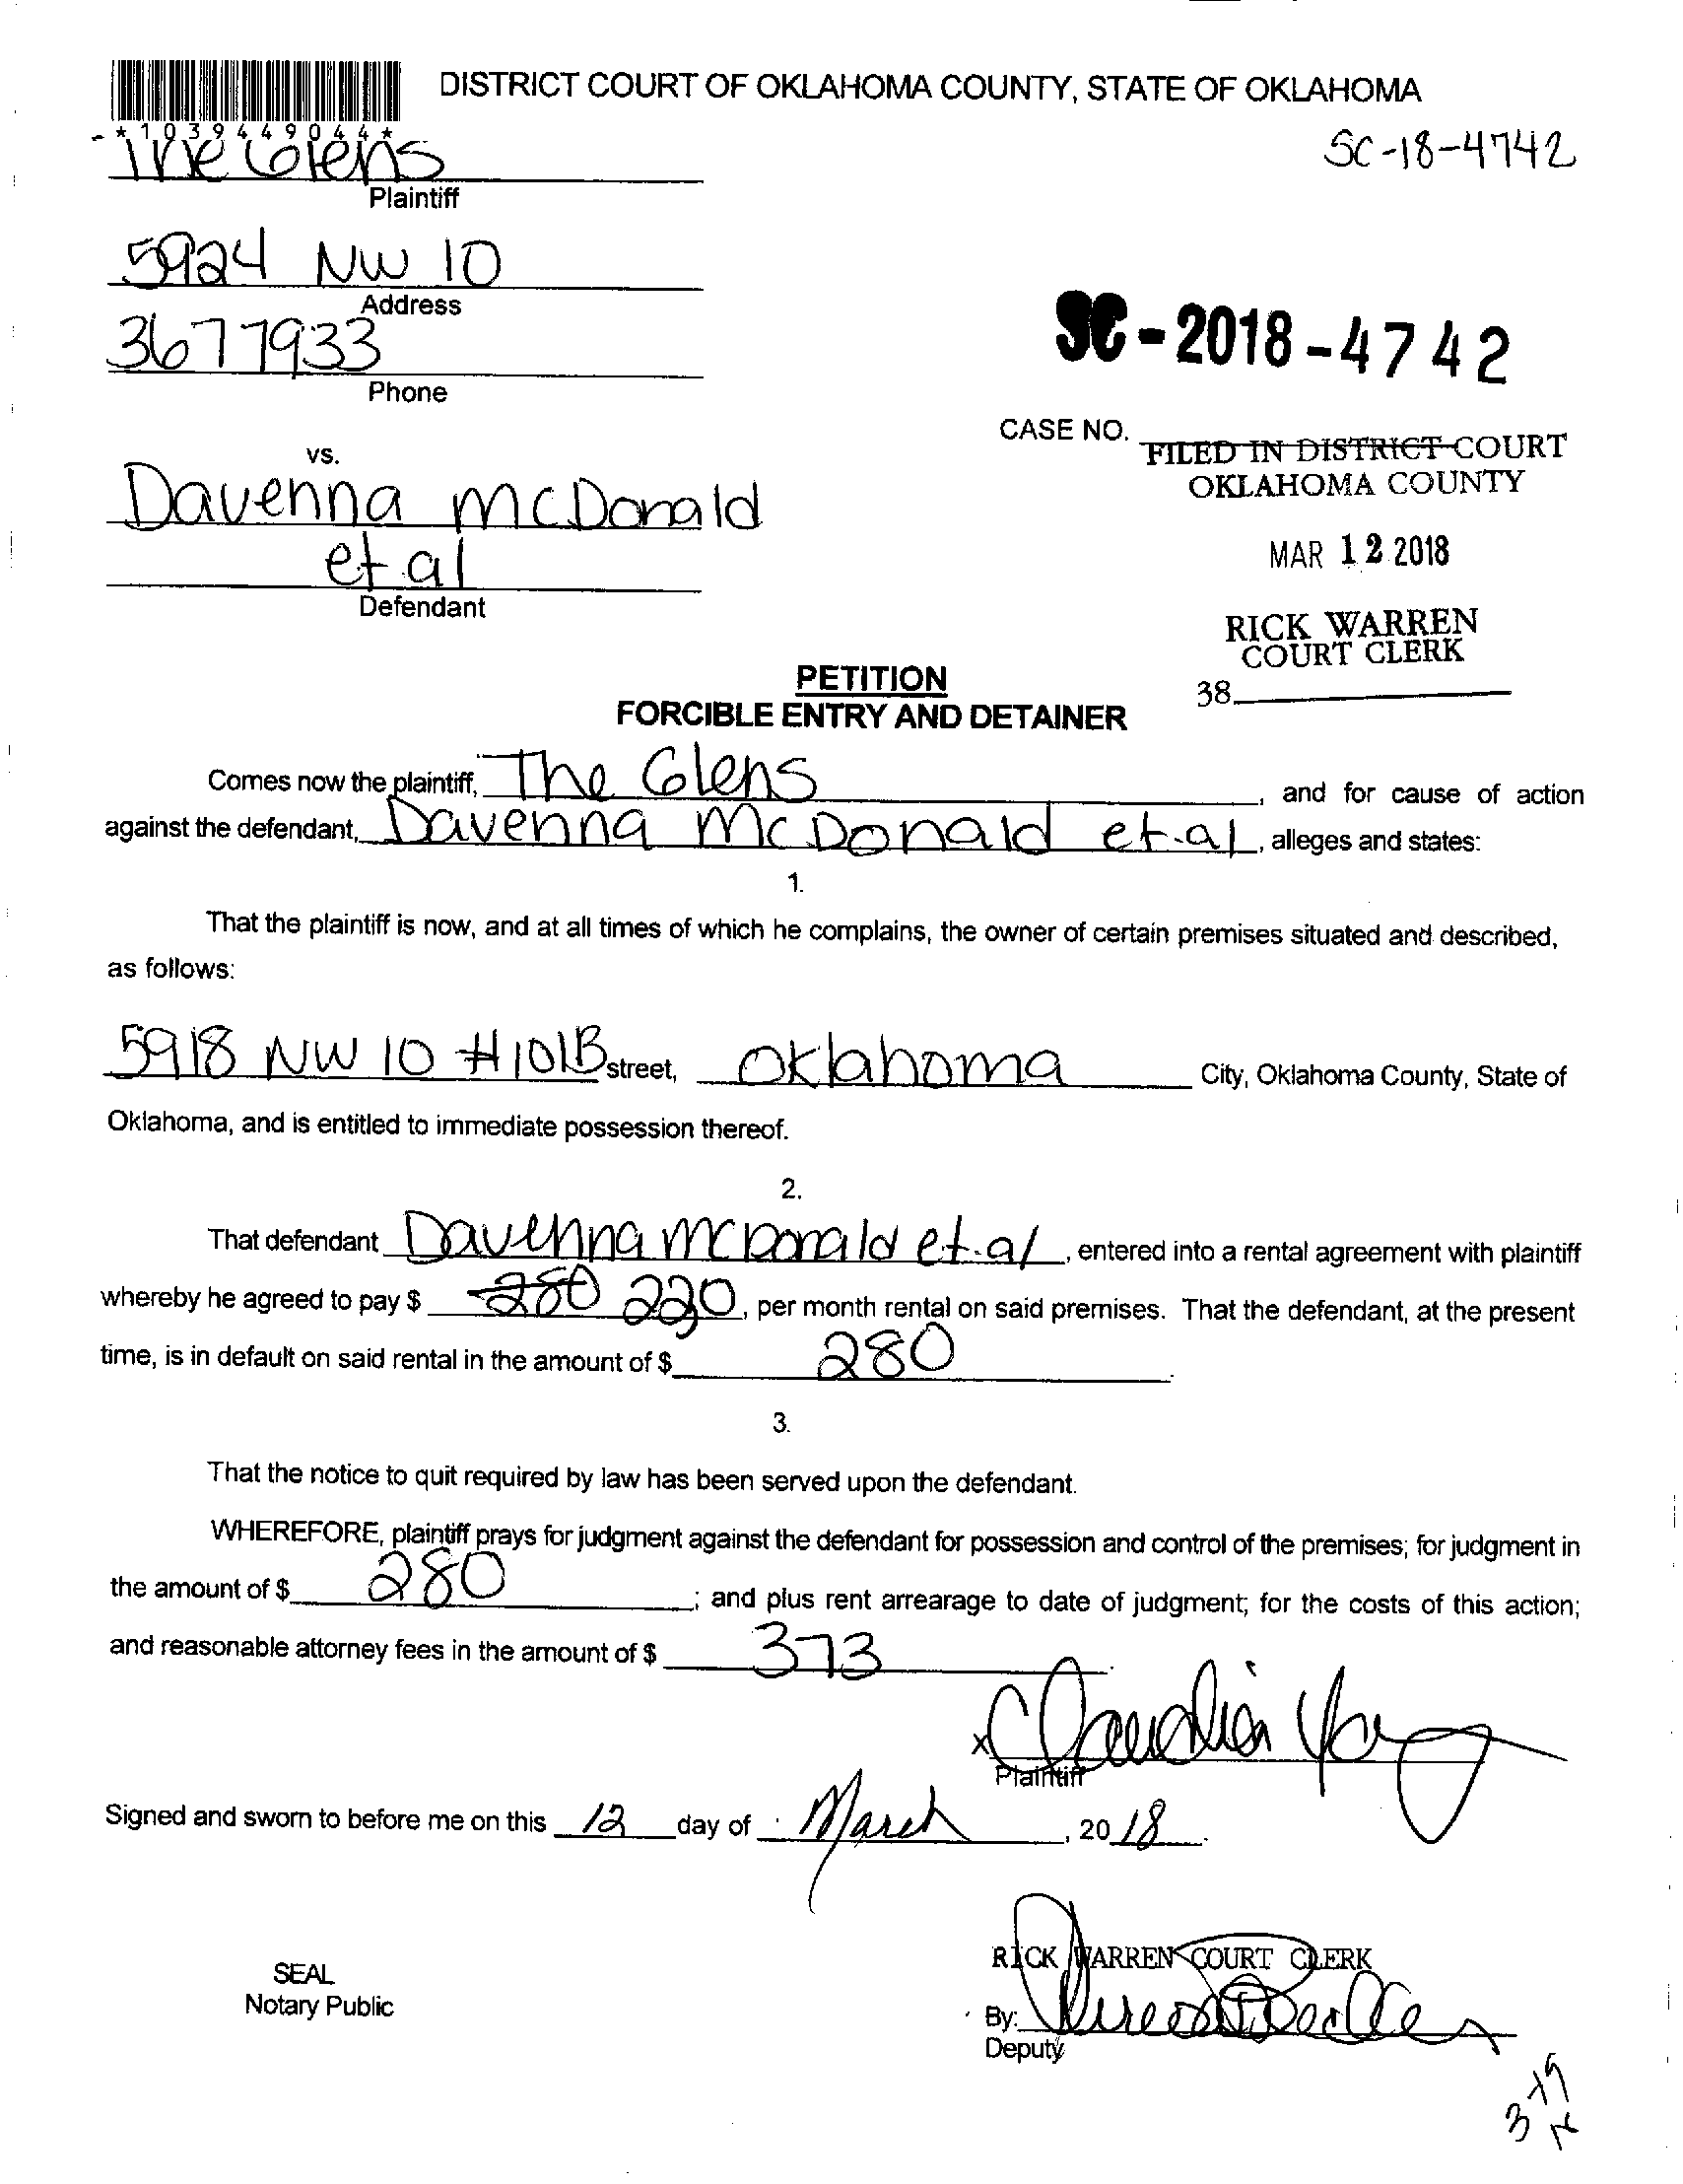 DISTRICT COURT OF OKLAHOMA COUNTY, STATE OF OKLAHOMA
*1039449044*
The Glens
SC-18-4742
Plaintiff
5924 NW 10
Address
3677933
Phone
SC-2018-4742
CASE NO.
FILED IN DISTRICT COURT
OKLAHOMA COUNTY
vs.
Davenna McDonald
et al
Defendant
MAR 12 2018
RICK WARREN
COURT CLERK
38
PETITION
FORCIBLE ENTRY AND DETAINER
Comes now the plaintiff, The Glens, and for cause of action
against the defendant, Davenna McDonald et.al, alleges and states:
1.
That the plaintiff is now, and at all times of which he complains, the owner of certain premises situated and described,
as follows:
5918 NW 10 #101B street, Oklahoma City, Oklahoma County, State of
Oklahoma, and is entitled to immediate possession thereof.
2.
That defendant Davenna McDonald et.al, entered into a rental agreement with plaintiff
whereby he agreed to pay $ 280 220, per month rental on said premises. That the defendant, at the present
time, is in default on said rental in the amount of $ 280.
3.
That the notice to quit required by law has been served upon the defendant.
WHEREFORE, plaintiff prays for judgment against the defendant for possession and control of the premises; for judgment in
the amount of $ 280; and plus rent arrearage to date of judgment; for the costs of this action;
and reasonable attorney fees in the amount of $ 373.
x Claudia
Plaintiff
Signed and sworn to before me on this 12 day of March, 2018.
SEAL
Notary Public
RICK WARREN COURT CLERK
By:
Deputy